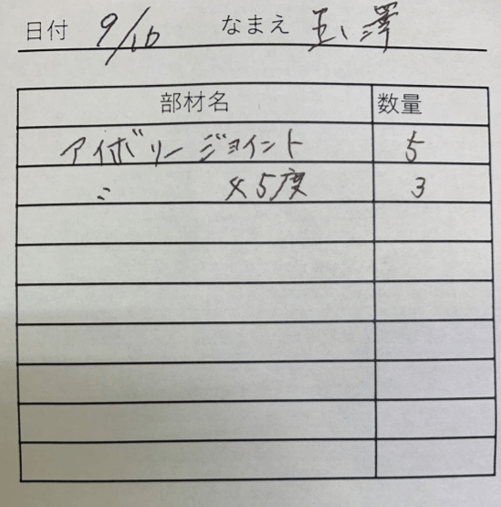 日付 9/10 なまえ 玉澤
部材名 数量
アイボリージョイント 5
〃 45度 3